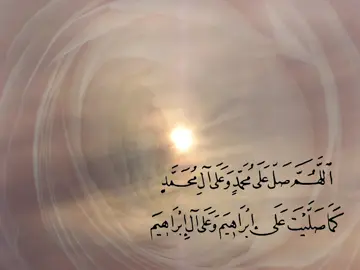 اَللّٰهُمَّ صَلِّ عَلَى مُحَمَّدٍ وَعَلَى آلِ مُحَمَّدٍ
كَمَا صَلَّيْتَ عَلَى إِبْرَاهِيْمَ وَعَلَى آلِ إِبْرَاهِيْمَ